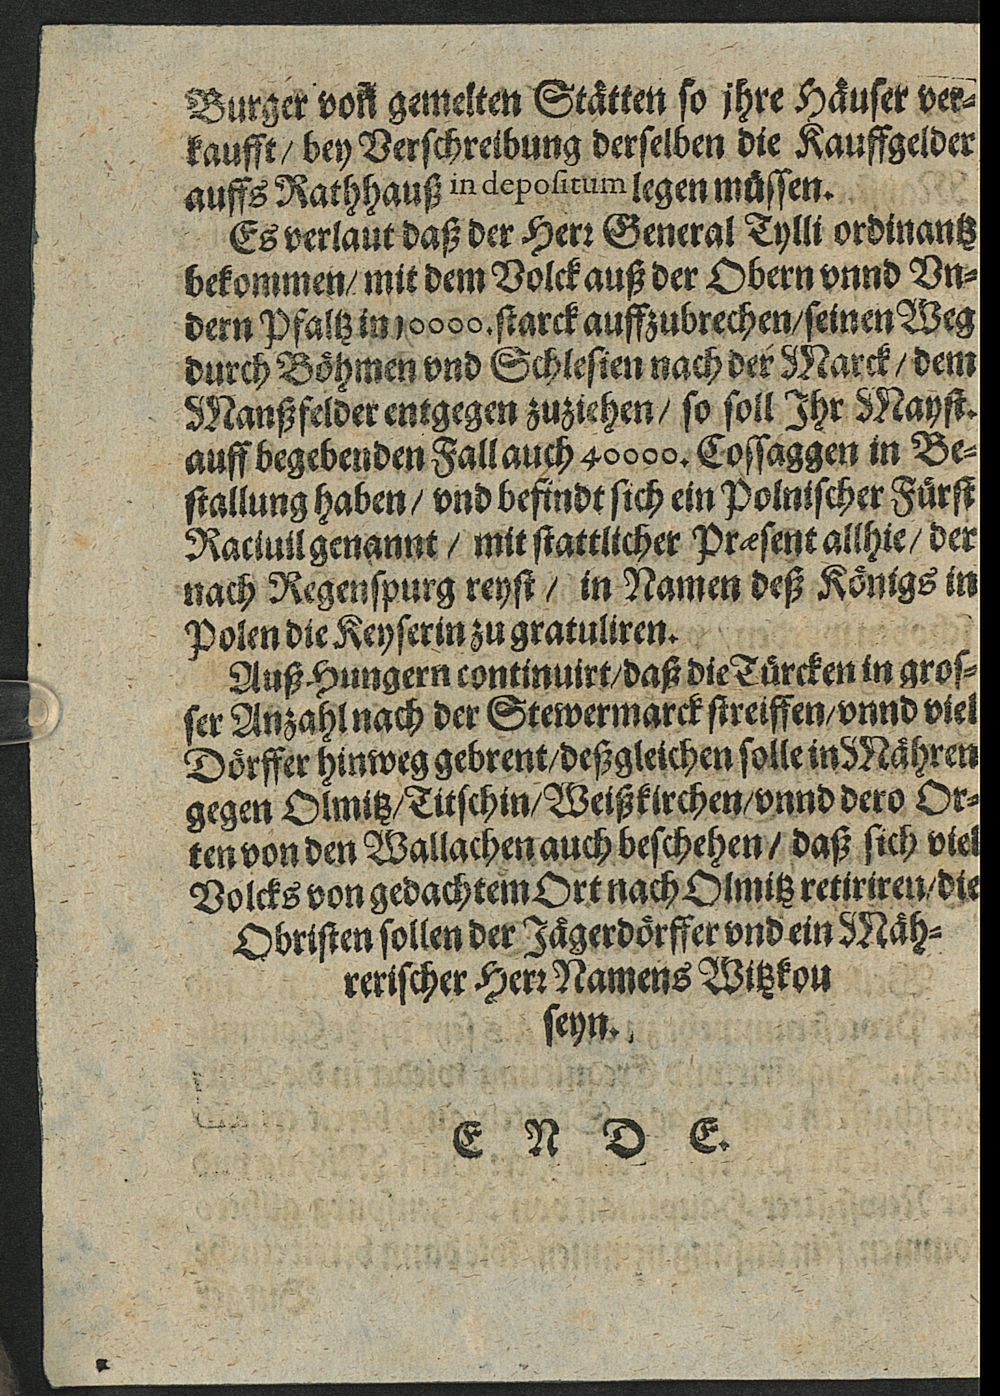 Burger von gemelten Stätten so jhre Häuser ver-
kaufft / bey Verschreibung derselben die Kauffgelder
auffs Rathhauß in depositum legen müssen.
Es verlaut daß der Herr General Tylli ordinantz
bekommen / mit dem Volck auß der Obern vnnd Vn-
dern Pfaltz in 10000. starck auffzubrechen / seinen Weg
durch Böhmen vnd Schlesien nach der Marck / dem
Manßfelder entgegen zuziehen / so soll Ihr Mayst.
auff begebenden Fall auch 40000. Cossaggen in Be-
stallung haben / vnd befindt sich ein Polnischer Fürst
Raciuil genannt / mit stattlicher Præsent allhie / der
nach Regenspurg reyst / in Namen deß Königs in
Polen die Keyserin zu gratuliren.
Auß Hungern continuirt / daß die Türcken in gros-
ser Anzahl nach der Stewermarck streiffen / vnnd viel
Dörffer hinweg gebrent / deßgleichen solle in Mähren
gegen Olmitz / Titschin / Weißkirchen / vnnd dero Or-
ten von den Wallachen auch beschehen / daß sich viel
Volcks von gedachtem Ort nach Olmitz retiriren / die
Obristen sollen der Jägerdörffer vnd ein Mäh-
rerischer Herr Namens Witzkou
seyn.
E N D E.